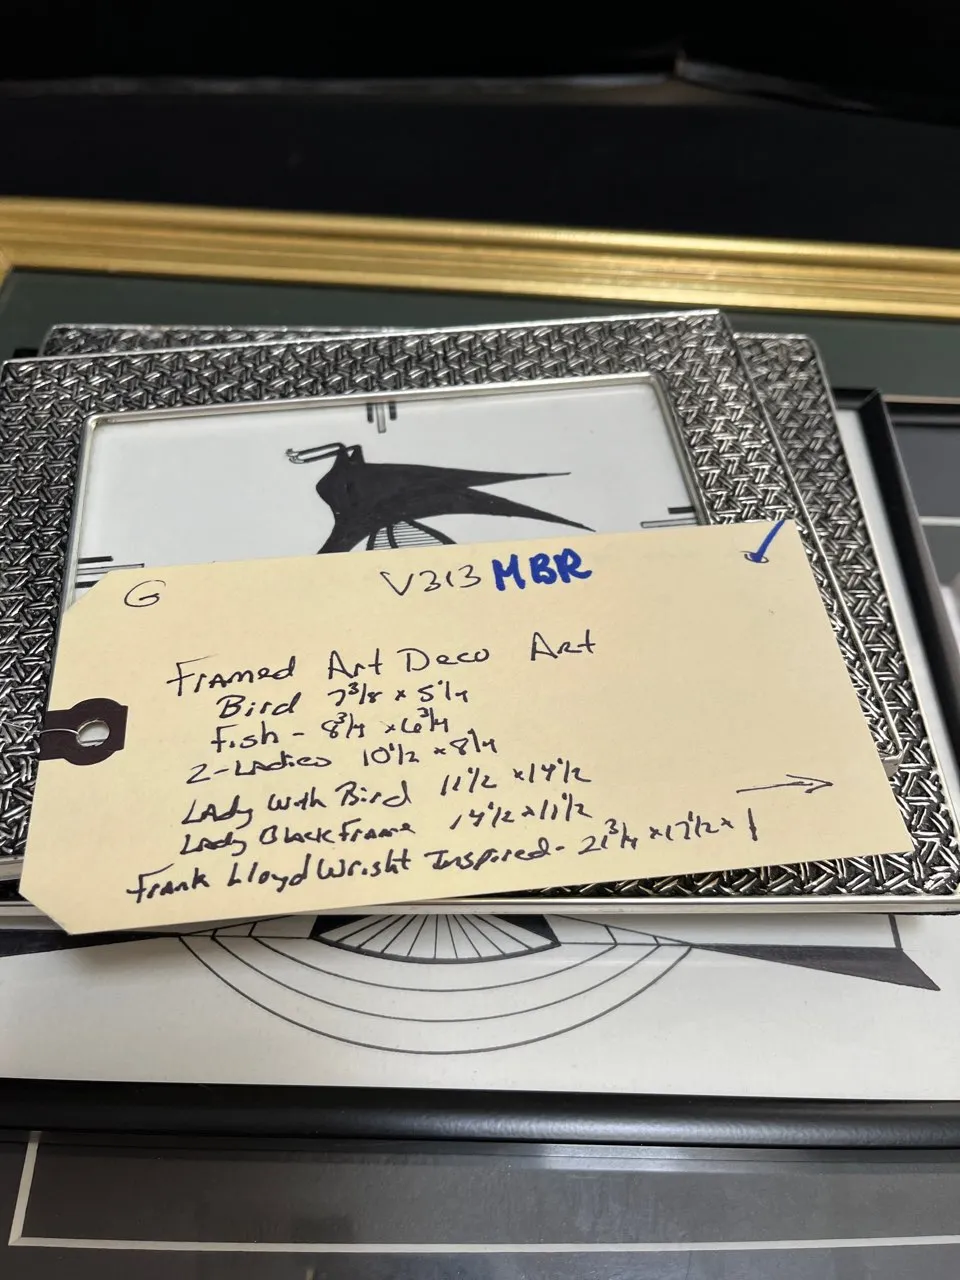 G V313 MBR
Framed Art Deco Art
Bird 7 3/8 x 5 1/4
Fish - 8 3/4 x 6 3/4
2-Ladies 10 1/2 x 8 1/4
Lady With Bird 11 1/2 x 14 1/2
Lady Black Frame 14 1/2 x 11 1/2
Frank Lloyd Wright Inspired - 21 3/4 x 17 1/2 x 1